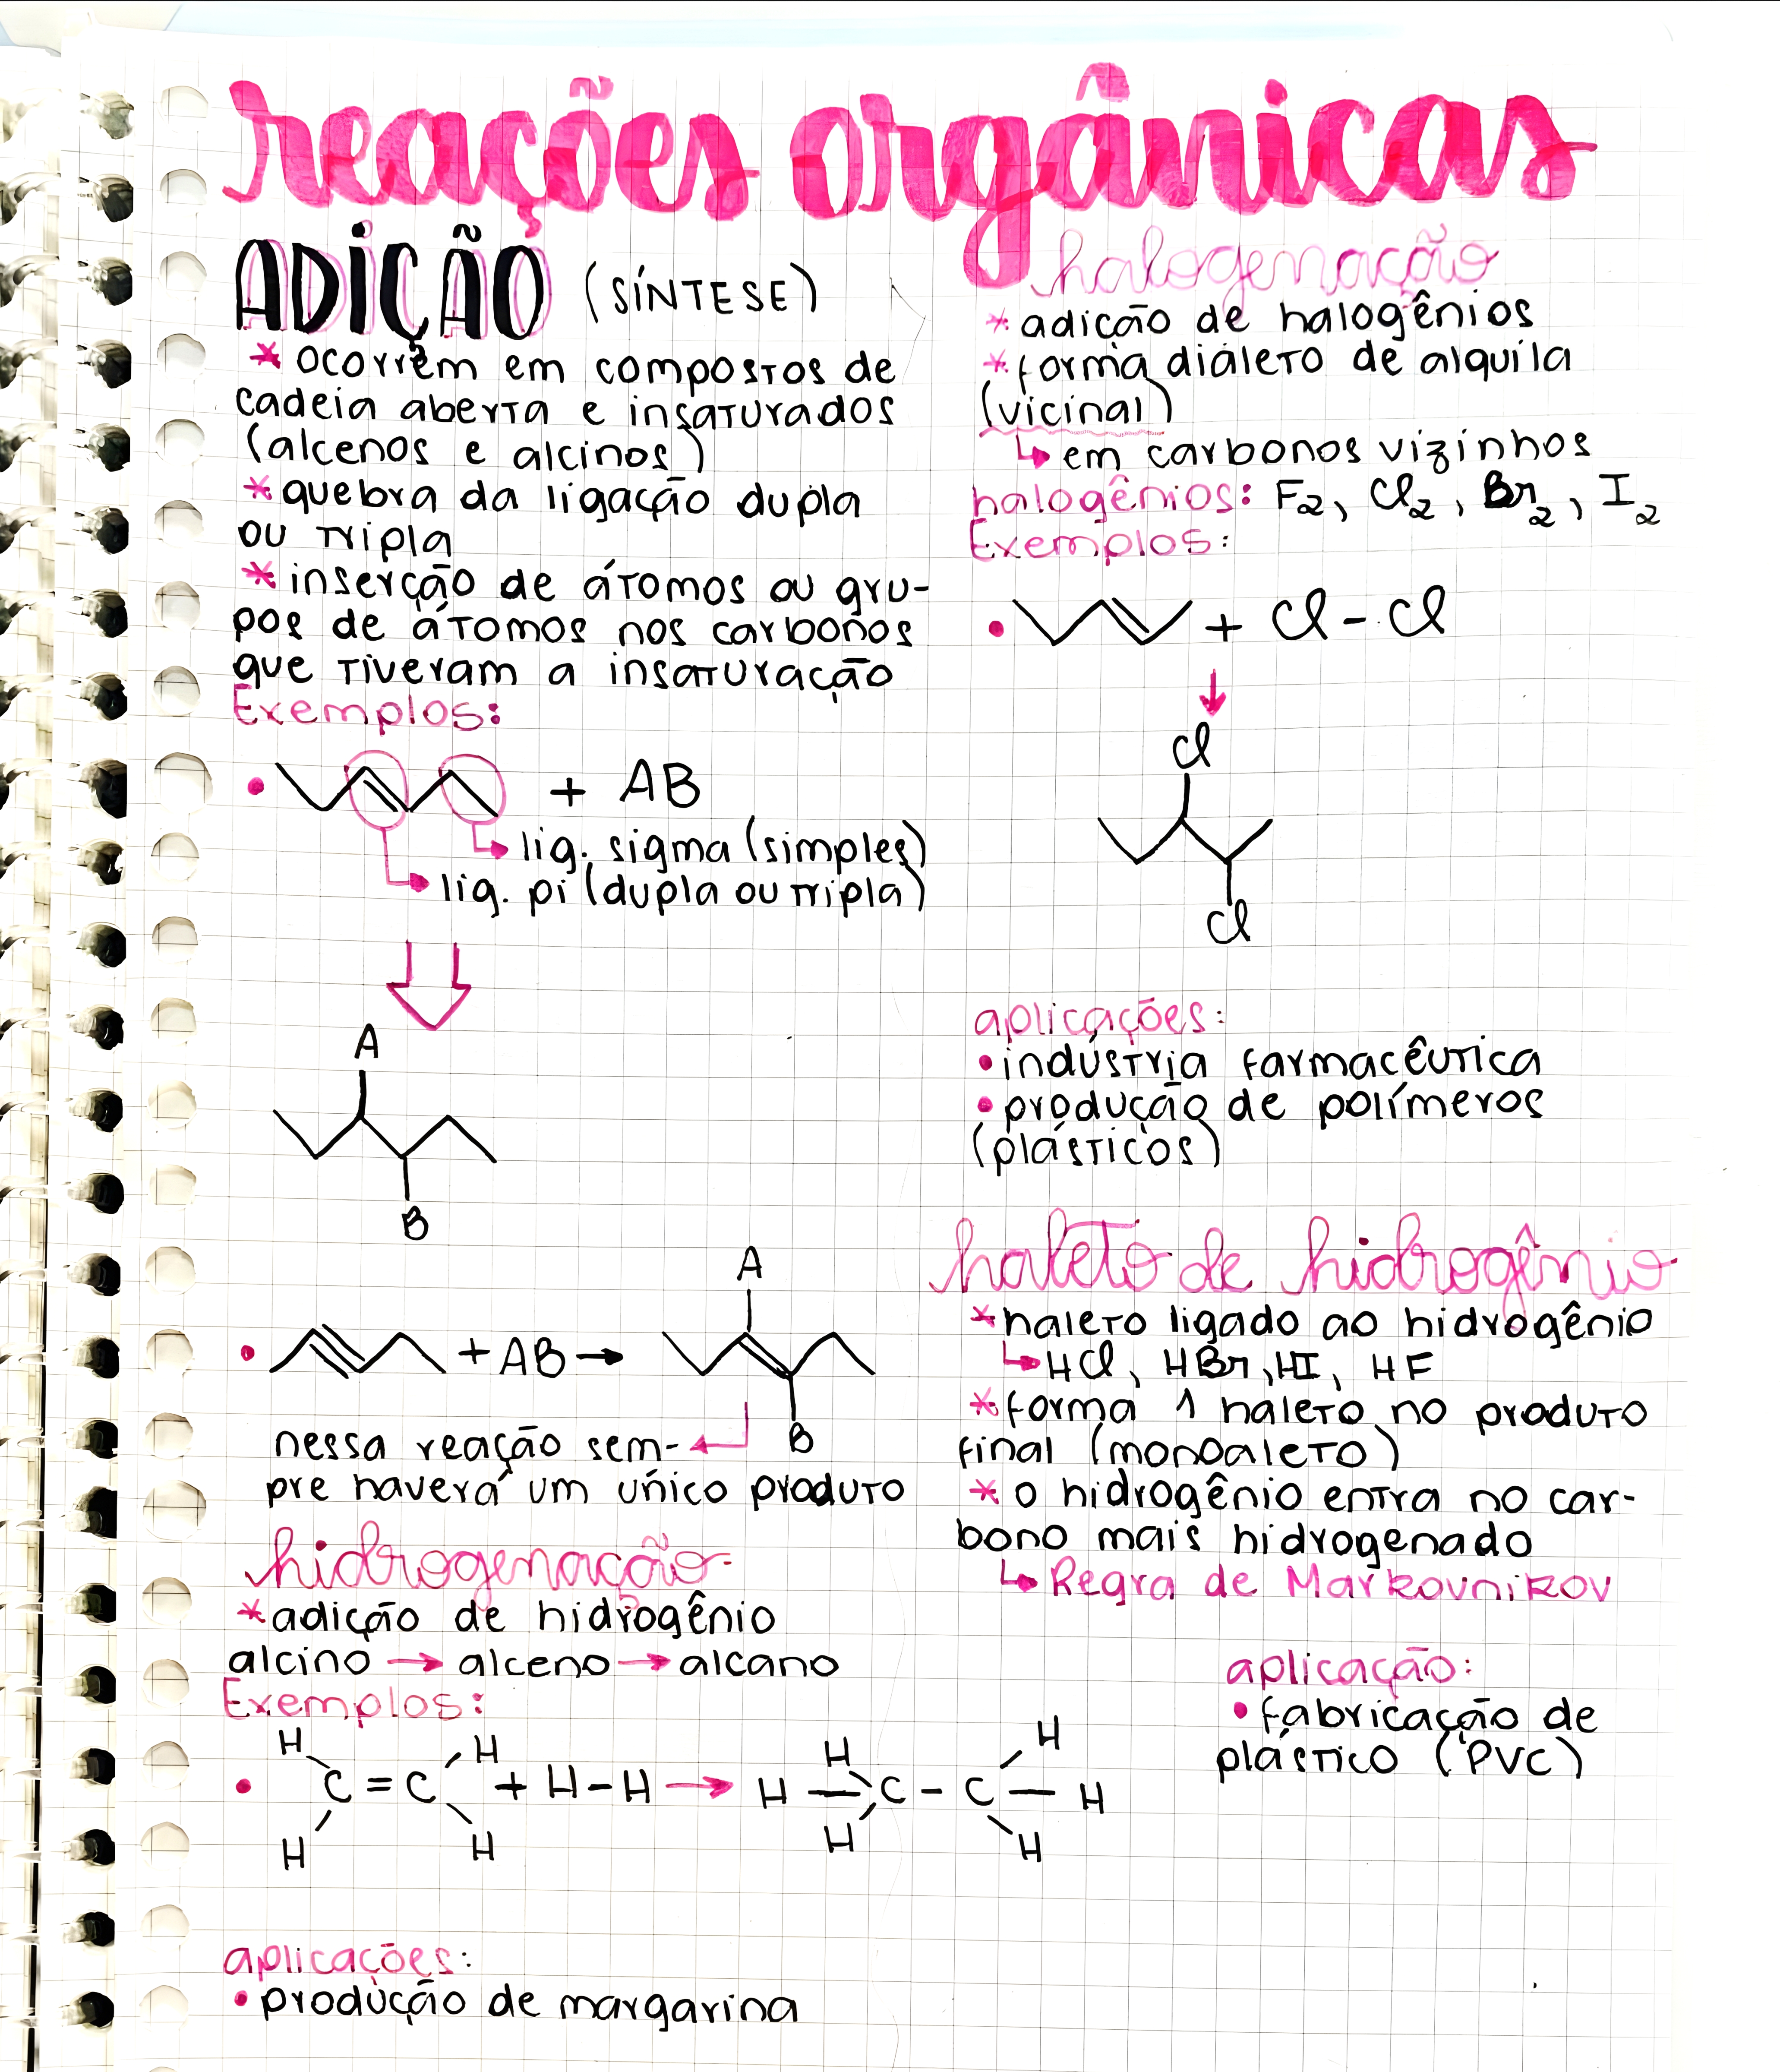 reações orgânicas
ADIÇÃO (SÍNTESE)
* ocorrem em compostos de
cadeia aberta e insaturados
(alcenos e alcinos)
* quebra da ligação dupla
ou tripla
* inserção de átomos ou gru-
pos de átomos nos carbonos
que tiveram a insaturação
Exemplos:
• + AB
lig. sigma (simples)
lig. pi (dupla ou tripla)
A
B
• + AB →
A
B
nessa reação sem-
pre haverá um único produto
hidrogenação
* adição de hidrogênio
alcino → alceno → alcano
Exemplos:
H H H H
• C = C + H - H → H — C - C — H
H H H H
aplicações:
• produção de margarina
halogenação
* adição de halogênios
* forma dialeto de alquíla
(vicinal)
↳ em carbonos vizinhos
halogênios: F2, Cl2, Br2, I2
Exemplos:
• + Cl - Cl
Cl
Cl
aplicações:
• indústria farmacêutica
• produção de polímeros
(plásticos)
haleto de hidrogênio
* haleto ligado ao hidrogênio
↳ HCl, HBr, HI, HF
* forma 1 haleto no produto
final (monoaleto)
* o hidrogênio entra no car-
bono mais hidrogenado
↳ Regra de Markovnikov
aplicação:
• fabricação de
plástico (PVC)